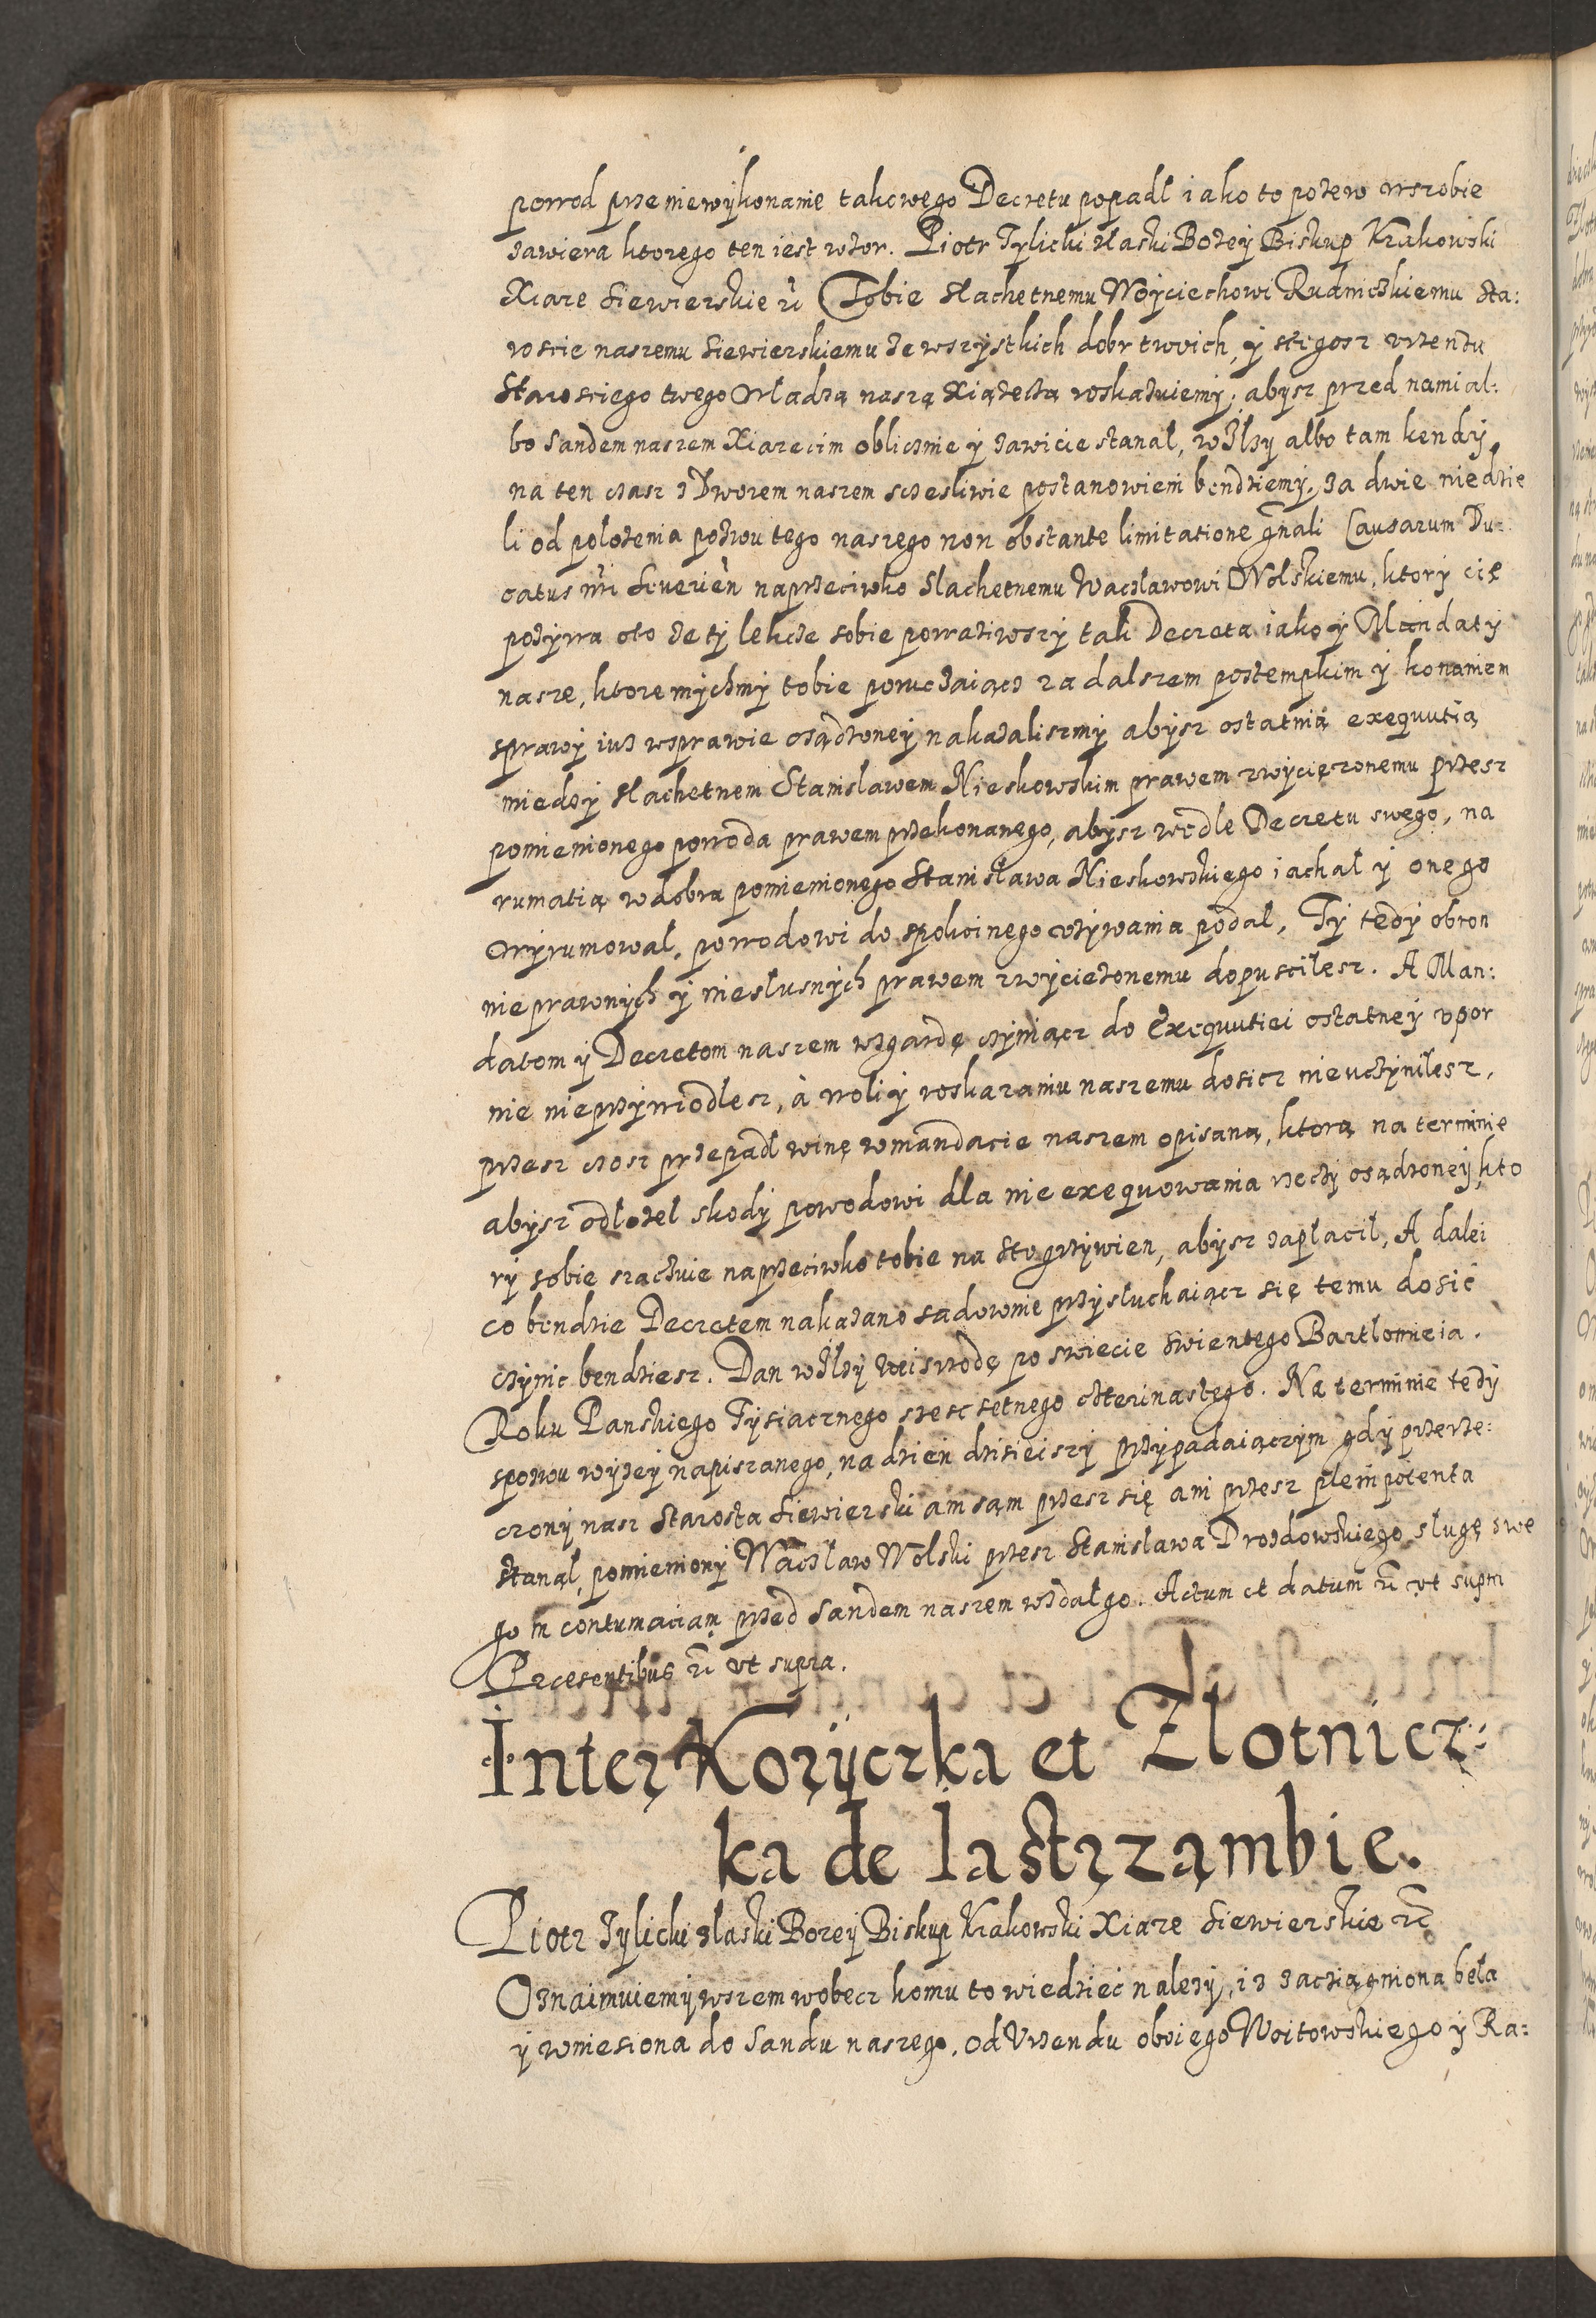 powod prze niewykonanie takowego Decretu popadł iako to pozew wszobie
zawiera ktorego ten iest wzor. Piotr Tylicki zlaski Bozey Biskup Krakowski
Xiaze Siewierskie &c Tobie slachetnemu Woyciechowi Rudniczkiemu sta:
roscie naszemu siewierskiemu ze wszystkich dobr twoich, y
Starosciego twego Władzą naszą Xiązeczą roskazuiemy, abysz przed nami al:
bo Sandem naszem Xiazecim oblicznie y zawicie stanął, wIlzy albo tam kendy
na ten czasz z Dworem naszem sczesliwie postanowieni bendziemy. za dwie niedzie
li od polozenia pozwu tego naszego non obstante limitatione gnãli Causarum Du:
catus nri Severien naprzeciwko slachetnemu Waczlawowi Wolskiemu, ktory cię
pozywa oto ze ty lekcze sobie powaziwszy tak Decreta iako y Mandaty
nasze, ktoremychmy tobie poruczaiącz za dalszem postempkim y konaniem
sprawy iuz wsprawie osądzoney nakazaliszmy abysz ostatnią exequutią
miedzy slachetnem Stanislawem Nieskowskim prawem zwyciężonemu przesz
pomienionego powoda prawem przekonanego, abysz wedle Decretu swego, na
rumatią wdobra pomienionego Stanisława Nieskowskiego iachał y onego
wyrumował, powodowi do spokoinego uzywania podał, Ty tedy obron
nieprawnych y niesłusnych prawem zwyciezonemu dopuscilesz. A Man:
datom y Decretom naszem wzgardę czyniącz do Exequutiei ostatney upor
nie nieprzywiodlesz, à woli y roskazaniu naszemu dosicz nieuczynilesz,
przesz czosz przepadł winę wmandacie naszem opisaną, ktorą na terminie
abysz odłożeł skody powodowi dla nie exequowania rzeczy osądzoney, kto
ry sobie szaczuie naprzeciwko tobie na sto grzywien, abysz zapłacił, A dalei
co bendzie Decretem nakazano sadownie przysłuchaiącz się temu dosić
czynic bendziesz. Dan wIlzy we srzodę po swiecie Swientego Bartlomieia.
Roku Panskiego Tysiacznego szescsetnego czternastego. Na terminie tedy
spozwu wyzey napiszanego, na dzien dzisieiszy przypadaiączym gdy przerze:
czony nasz Starosta Siewierski ani sąm przesz się ani przesz plenipotenta
stanął, pomieniony Waczlaw Wolski przesz Stanislawa Drozdowskiego sługę swe
go in contumaciam przed Sandem naszem wzdał go. Actum et datum &c ut supra
Præsentibus &c ut supra.
Inter Koryczka et Złotnicz:
ka de Iastrząmbie.
Piotr Tylicki zlaski Bozey Biskup Krakowski Xiaze Siewierskie &c
Oznaimuiemy wszem wobecz komu to wiedzieć nalezy, iz zacziągniona beła
y wniesiona do Sandu naszego, od Vrzendu oboiego Woitowskiego y Ra: